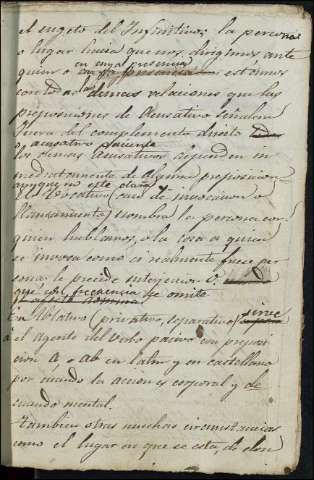 el sugeto del Infinitivo; la persona
o lugar hacia que nos dirigimos ante
quien o en cuya presencia estamos
con todas las demas relaciones que las
preposiciones de Acusativo señalan
fuera del complemento directo
o acusativo paciente
los demas Acusativos dependen in
mediatamente de alguna preposicion
aunque no este clara
El Vocativo (caso de invocacion o
llamamiento) nombra la persona con
quien hablamos, o la cosa a quien
se invoca como si realmente fuese per
sona: le precede interjecion O:
que con frecuencia se omite
En Ablativo (privativo, separativo) sirve
el agente del verbo pasivo con preposi
cion A o ab en latin y en castellano
por cuando la accion es corporal y de
cuando mental.
Tambien otras muchas circunstancias
como el lugar en que se esta, de don